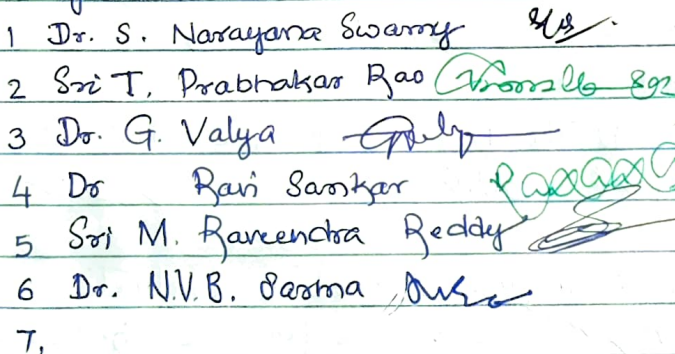 1 Dr. S. Narayana Swamy
2 Sri T. Prabhakar Rao
3 Dr. G. Valya
4 Dr Ravi Sankar
5 Sri M. Raveendra Reddy
6 Dr. N.V.B. Sarma
7.